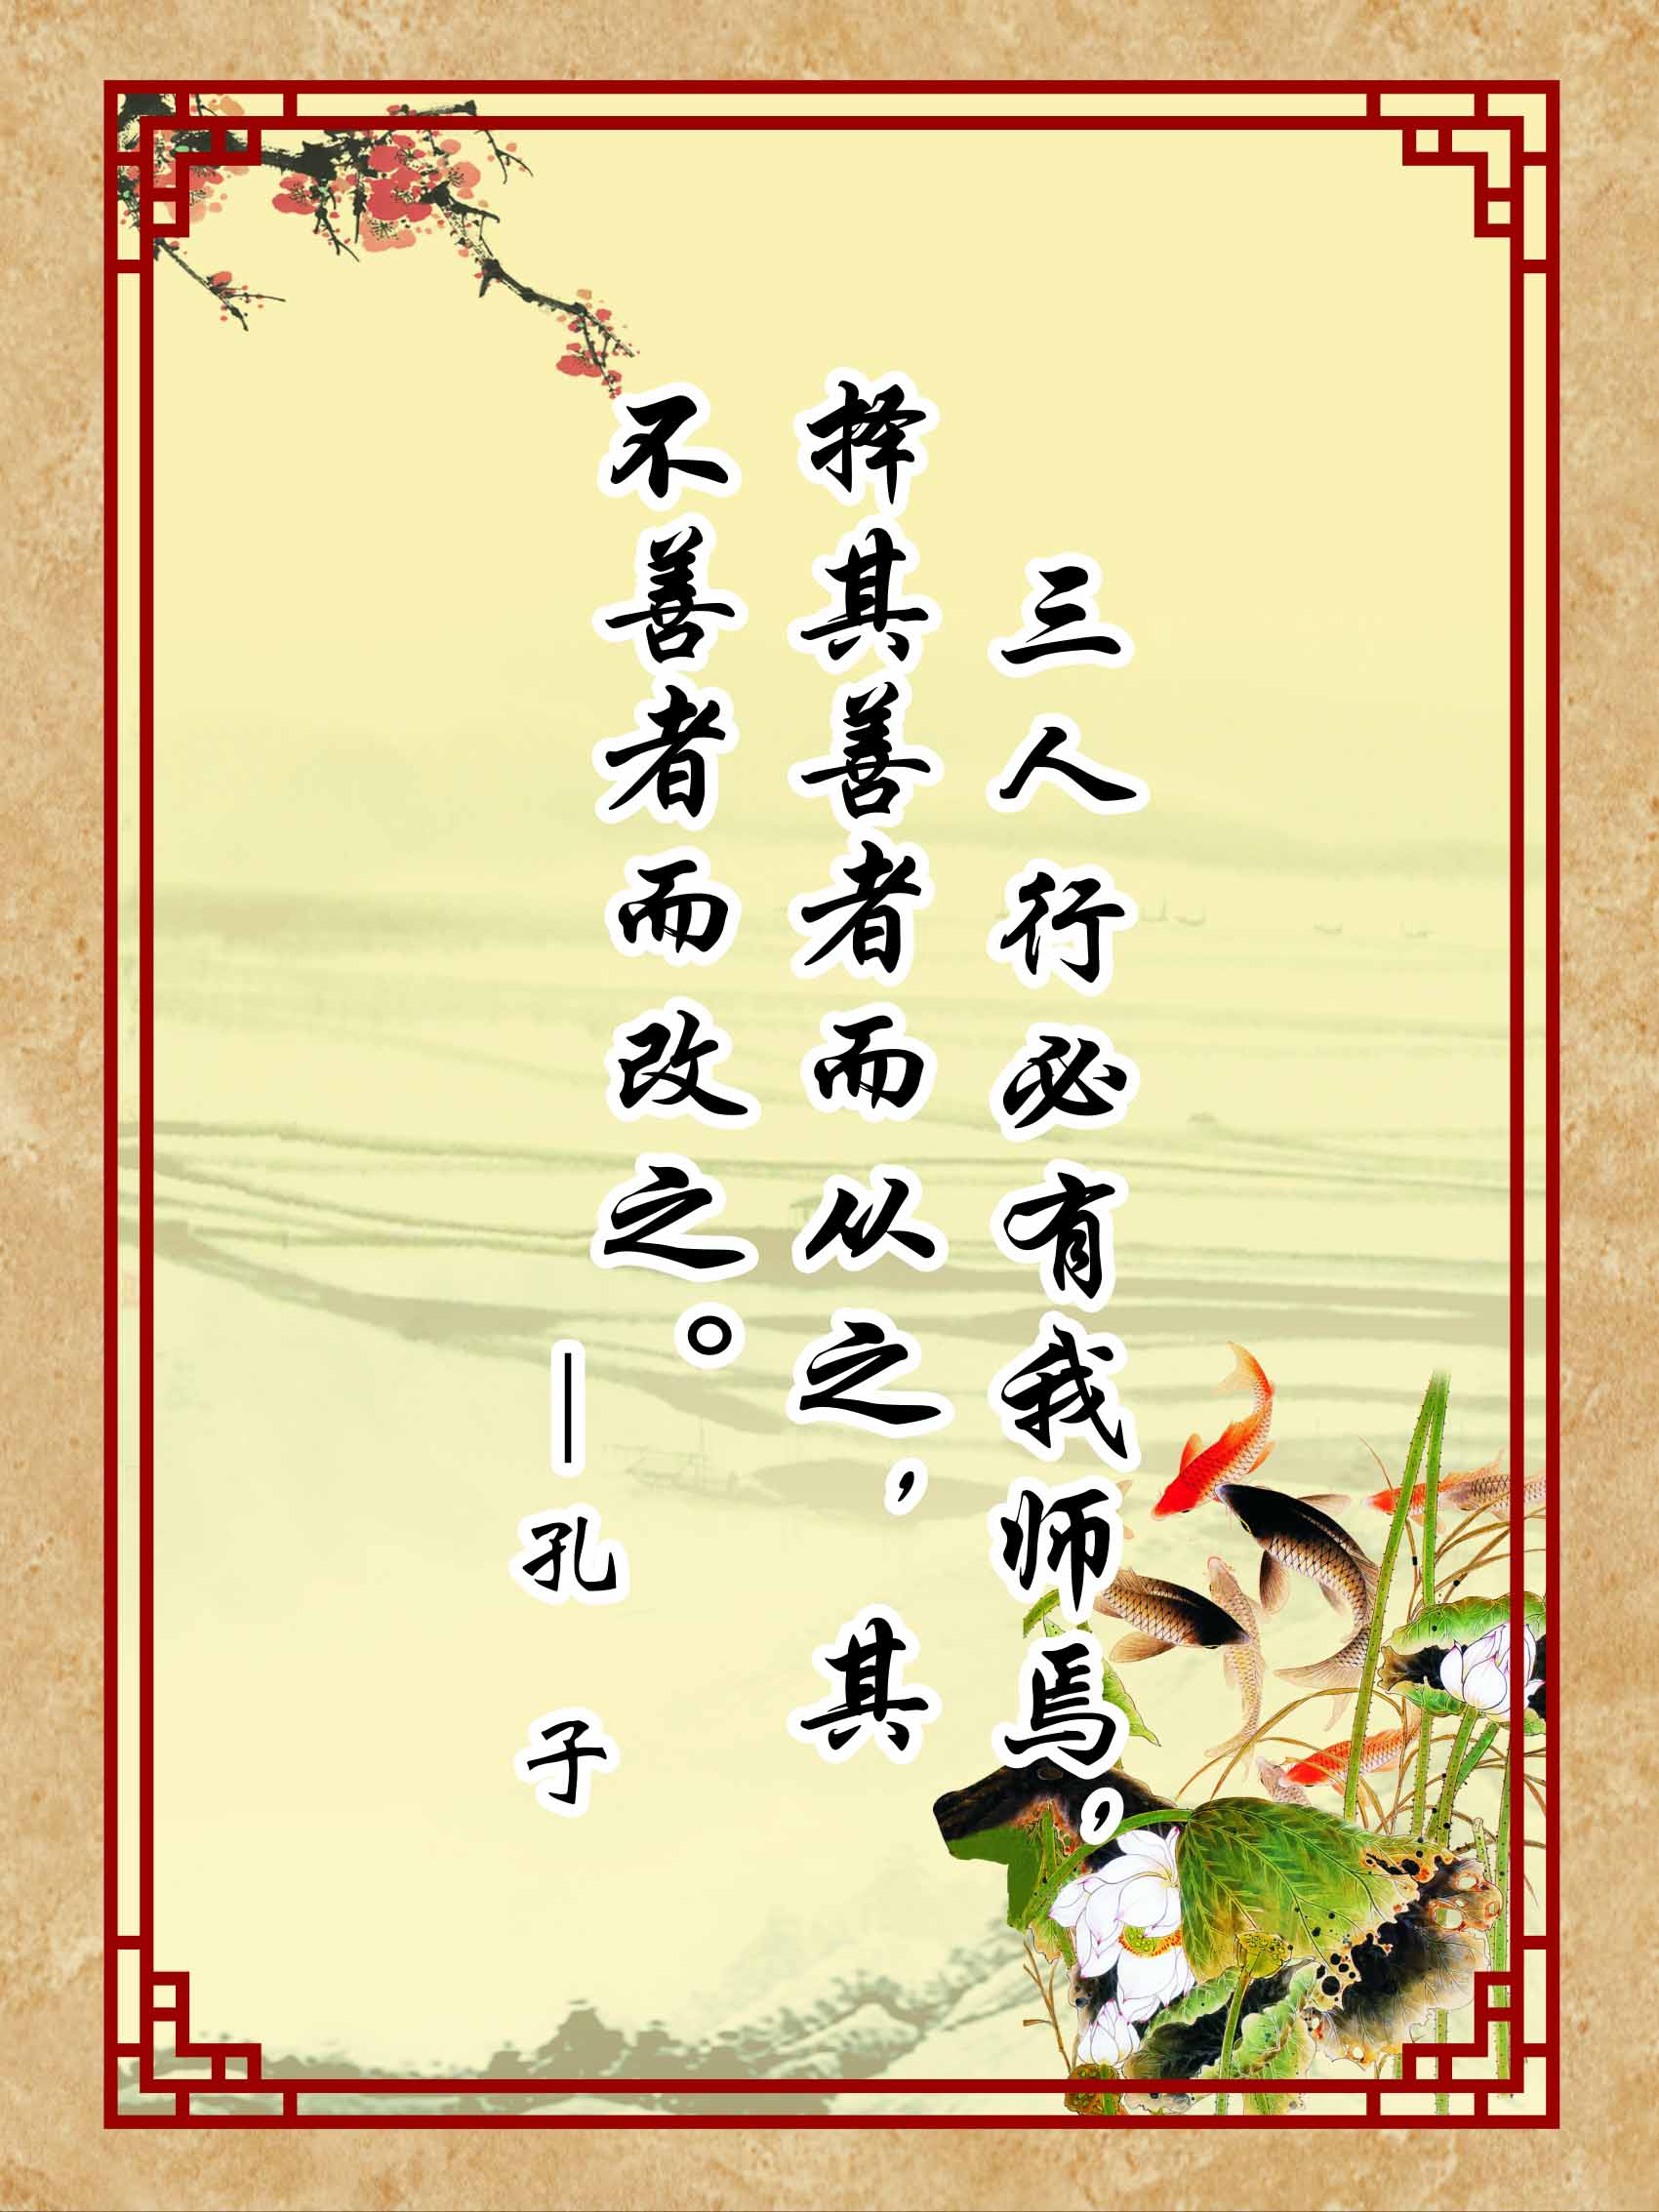 三人行必有我师焉，
择其善者而从之，其
不善者而改之。
—孔子